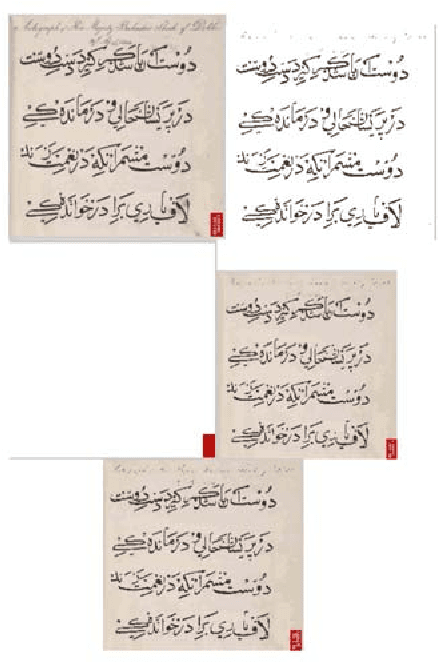 Autograph of His Majesty Bahadur Shah of Delhi
دوست آن باشد که گیرد دست دوست
در پریشان حالی و درماندگی
دوست مشمار آنکه در نعمت زند
لاف یاری و برادر خواندگی
دوست آن باشد که گیرد دست دوست
در پریشان حالی و درماندگی
دوست مشمار آنکه در نعمت زند
لاف یاری و برادر خواندگی
دوست آن باشد که گیرد دست دوست
در پریشان حالی و درماندگی
دوست مشمار آنکه در نعمت زند
لاف یاری و برادر خواندگی
دوست آن باشد که گیرد دست دوست
در پریشان حالی و درماندگی
دوست مشمار آنکه در نعمت زند
لاف یاری و برادر خواندگی